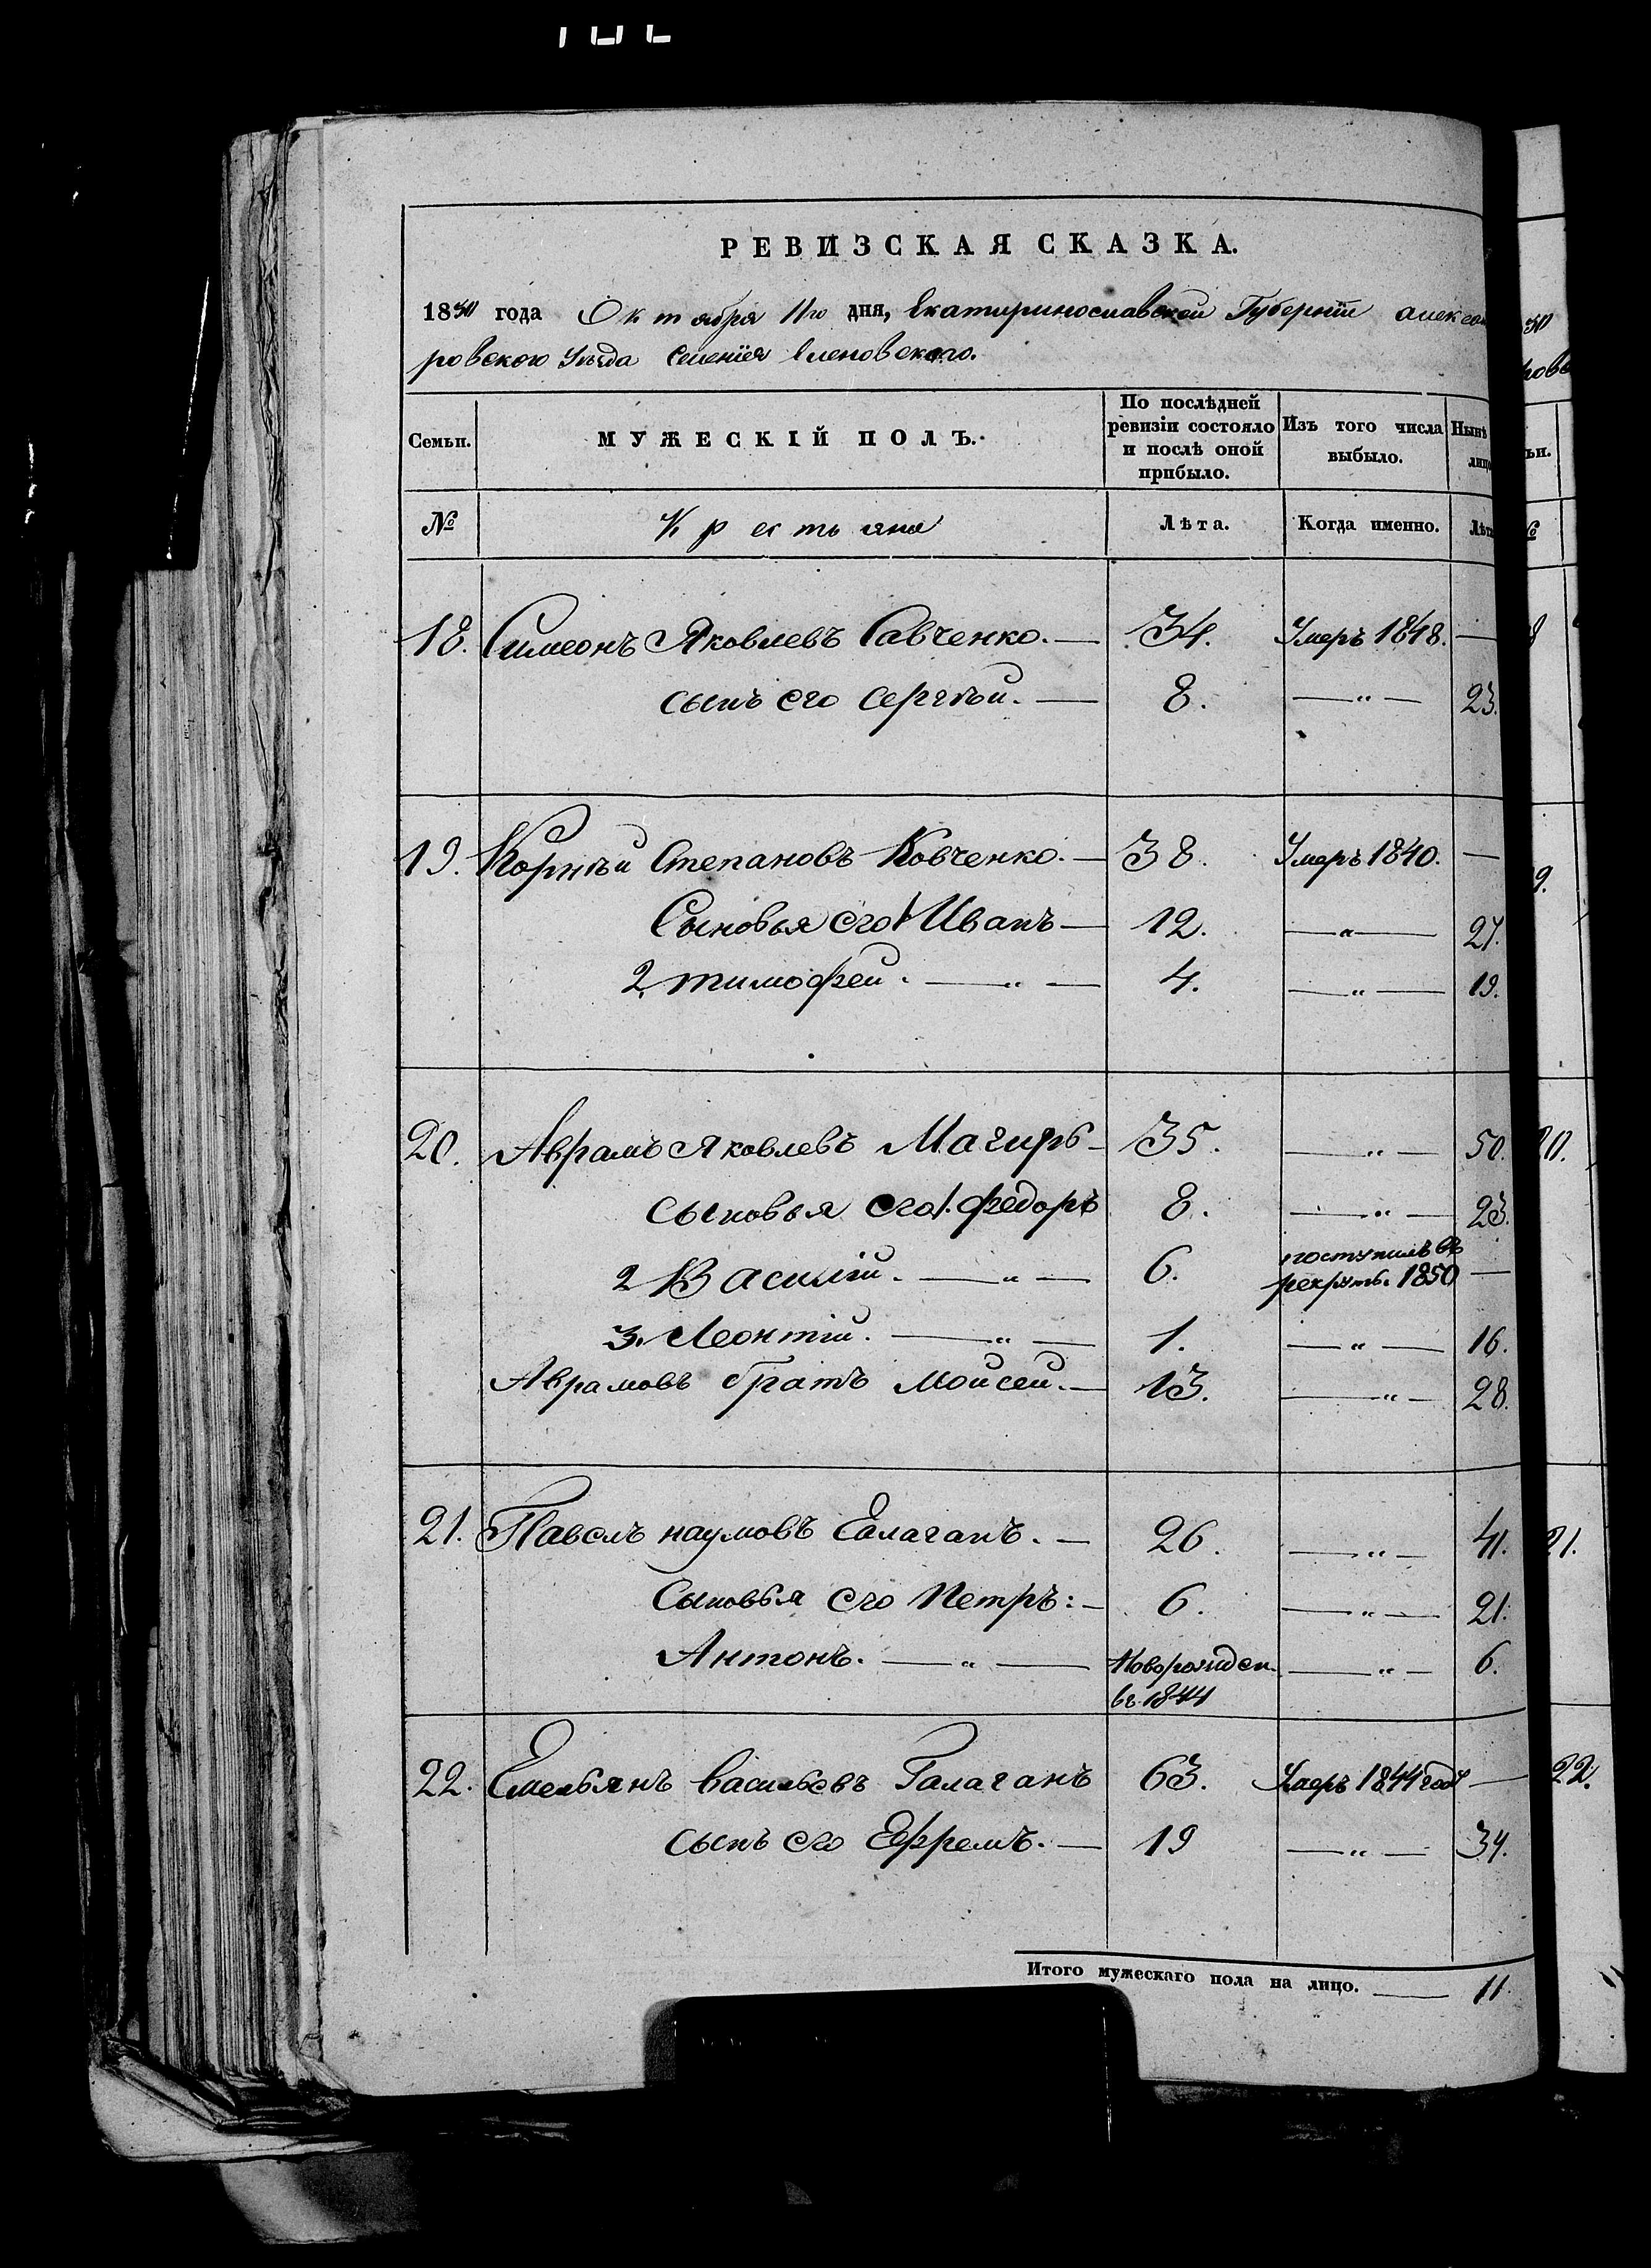 РЕВИЗСКАЯ СКАЗКА.
1850 года Октября 11го дня, Екатеринославской Губерніи Алексан
ровского Уѣзда Селенія Еленовского.
Семьи.
МУЖЕСКІЙ ПОЛЪ.
По послѣдней ревизіи состояло и послѣ оной прибыло.
Изъ того числа выбыло.
Нынѣ лицо
№ Крестьяне Лѣта. Когда именно. Лѣта
18. Симеонъ Яковлевъ Савченко. — 34. Умеръ 1848. —
сынъ его Сергѣй. — 8. — " — 23.
19. Корнѣй Степановъ Ковченко. — 38. Умеръ 1840. —
Сыновья его 1 Иванъ — 12. — " — 27.
2, тимофей. — " — 4. — " — 19.
20. Аврамъ Яковлевъ Магиръ — 35. — " — 50.
сыновья его 1. федоръ 8. — " — 23.
2 Василій. — " — 6. поступилъ въ рекруты. 1850 —
3. Леонтій. — " — 1. — " — 16.
Аврамовъ братъ Моисей. — 13. — " — 28.
21. Павелъ наумовъ Галаганъ. — 26. — " — 41.
Сыновья его Петръ: — 6. — " — 21.
Антонъ. — " — Новорожден. — " — 6.
въ 1844
22. Емельянъ васильевъ Галаганъ 63. Умеръ 1844 году —
сынъ его Ефремъ. — 19 — " — 34.
Итого мужескаго пола на лицо. — 11.